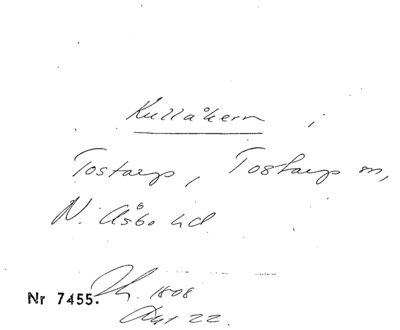 Kullåkern i
Tostarp, Tostarp sn,
N. Åsbo hd
Nr 7455. 1808
Akt 22.